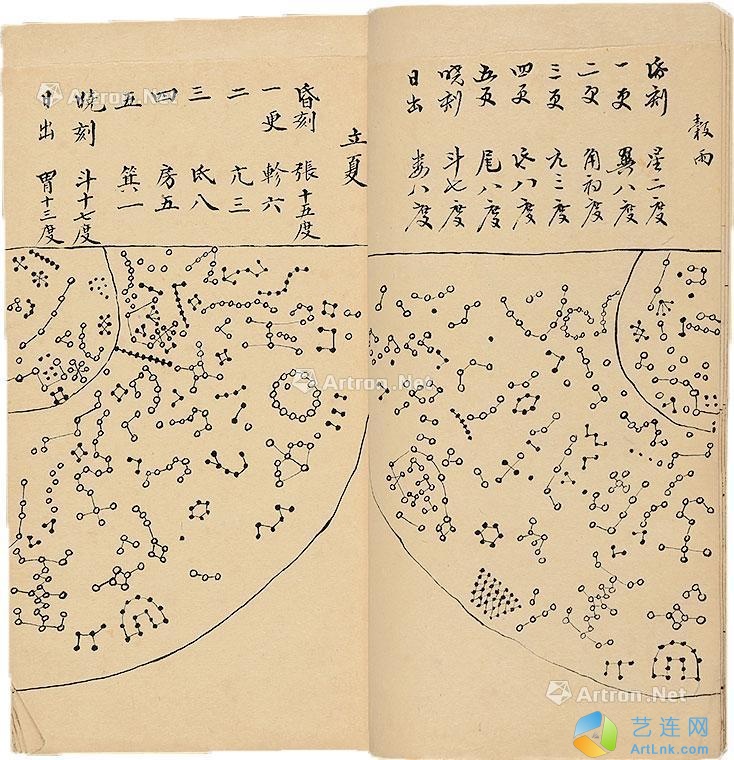 穀雨
昏刻 星二度
一更 翼八度
二更 角初度
三更 亢三度
四更 氐八度
五更 尾八度
曉刻 斗七度
日出 婁八度
立夏
昏刻 張十五度
一更 軫六
二 亢三
三 氐八
四 房五
五 箕一
曉刻 斗十七度
日出 胃十三度
Artron.Net
Artron.Net
Artron.Net
Artron.Net
Artron.Net
艺连网
ArtLnk.com